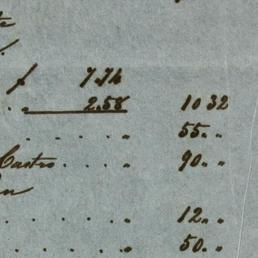 f 7.74
" 2.58 10 32
. . . . " 55 " "
Castro . . . " 90 " "
. . . . " 12 " "
. . . . " 50 " "